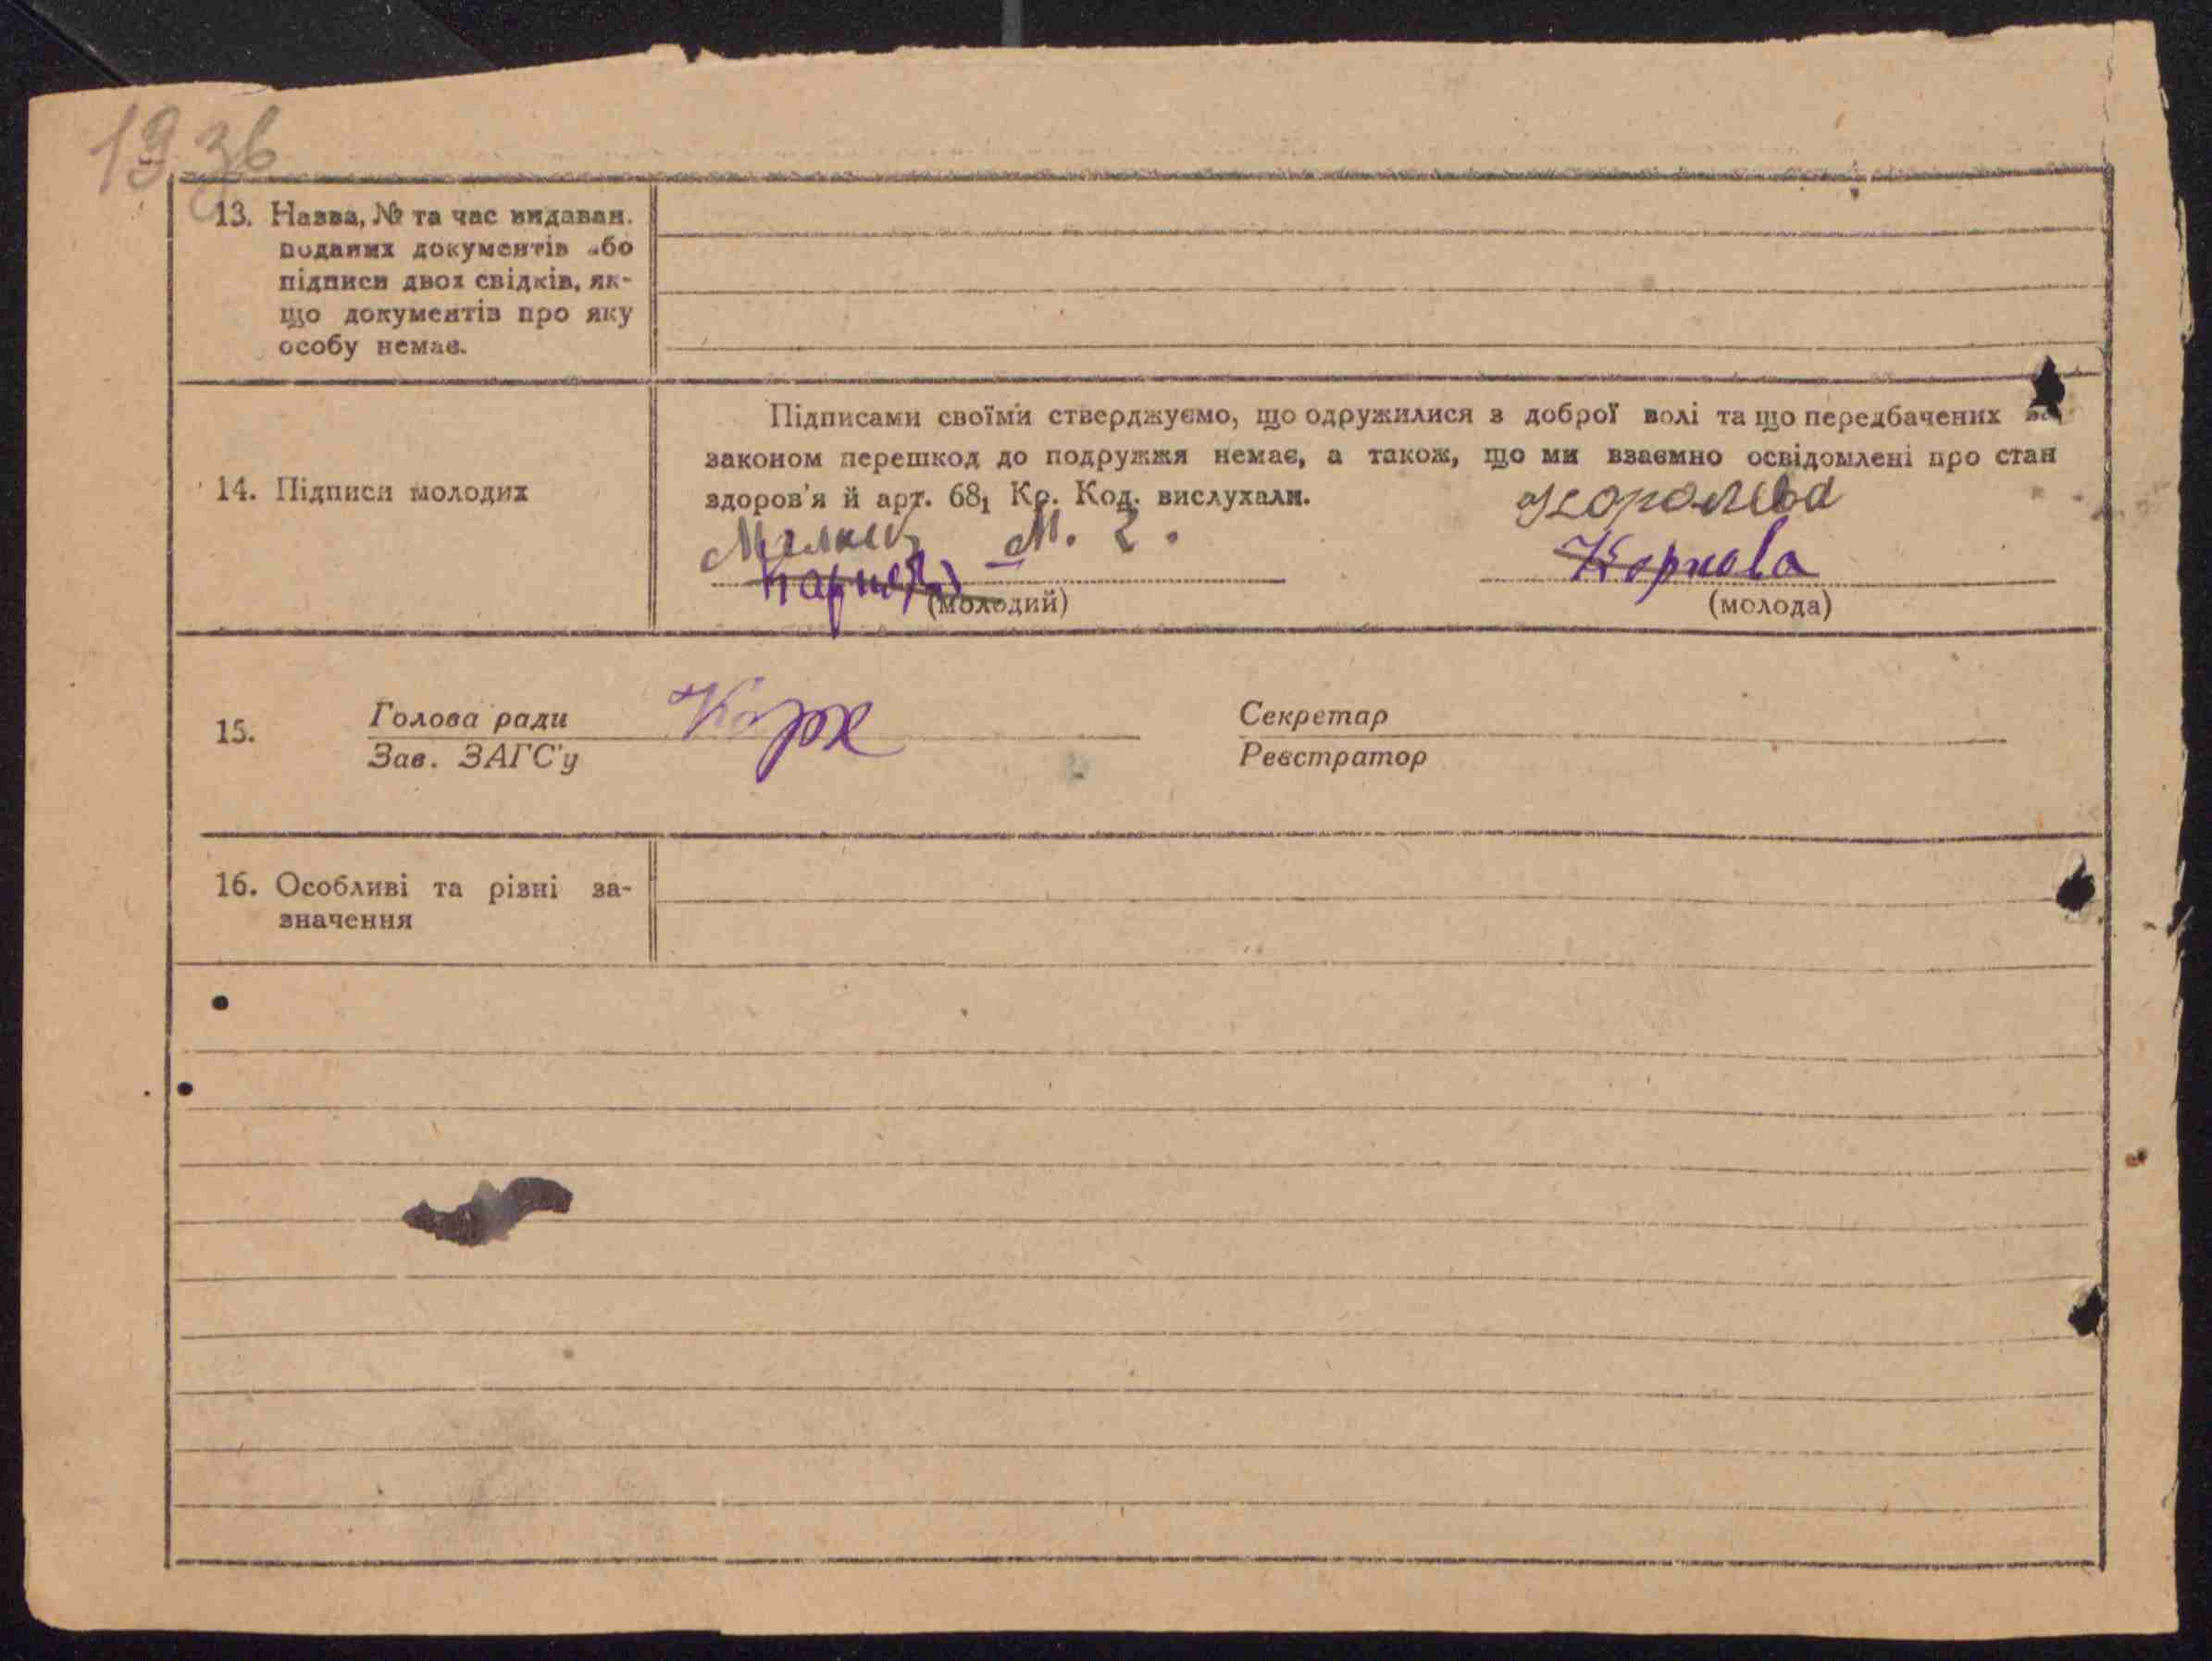 1936
13. Назва, № та час видаван.
поданих документів або
підписи двох свідків, як-
що документів про яку
особу немає.
14. Підписи молодих
Підписами своїми стверджуємо, що одружилися з доброї волі та що передбачених за
законом перешкод до подружжя немає, а також, що ми взаємно освідомлені про стан
здоров'я й арт. 68₁ Кр. Код. вислухали.
М. Королева
(молодий) (молода)
15. Голова ради Секретар
Зав. ЗАГС'у Реєстратор
16. Особливі та різні за-
значення